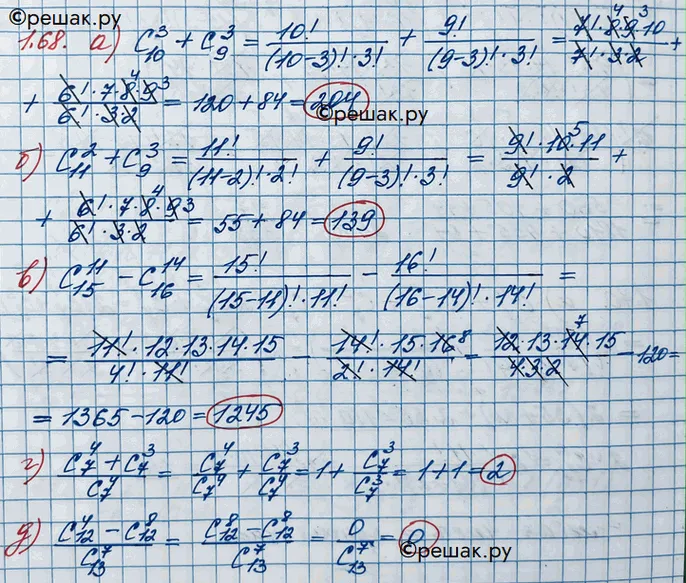 ©решак.ру
1.68. а) C₁₀³ + C₉³ = 10!/((10-3)!·3!) + 9!/((9-3)!·3!) = 7!·8⁴·9³·10/(7!·3·2) +
+ 6!·7·8⁴·9³/(6!·3·2) = 120 + 84 = 204
©решак.ру
б) C₁₁² + C₉³ = 11!/((11-2)!·2!) + 9!/((9-3)!·3!) = 9!·10⁵·11/(9!·2) +
+ 6!·7·8⁴·9³/(6!·3·2) = 55 + 84 = 139
в) C₁₅¹¹ - C₁₆¹⁴ = 15!/((15-11)!·11!) - 16!/((16-14)!·14!) =
= 11!·12·13·14·15/(4!·11!) - 14!·15·16⁸/(2!·14!) = 12·13·14⁷·15/(4·3·2) - 120 =
= 1365 - 120 = 1245
г) (C₇⁴ + C₇³)/C₇⁴ = C₇⁴/C₇⁴ + C₇³/C₇⁴ = 1 + C₇³/C₇³ = 1 + 1 = 2
д) (C₁₂⁴ - C₁₂⁸)/C₁₃⁷ = (C₁₂⁸ - C₁₂⁸)/C₁₃⁷ = 0/C₁₃⁷ = 0
©решак.ру